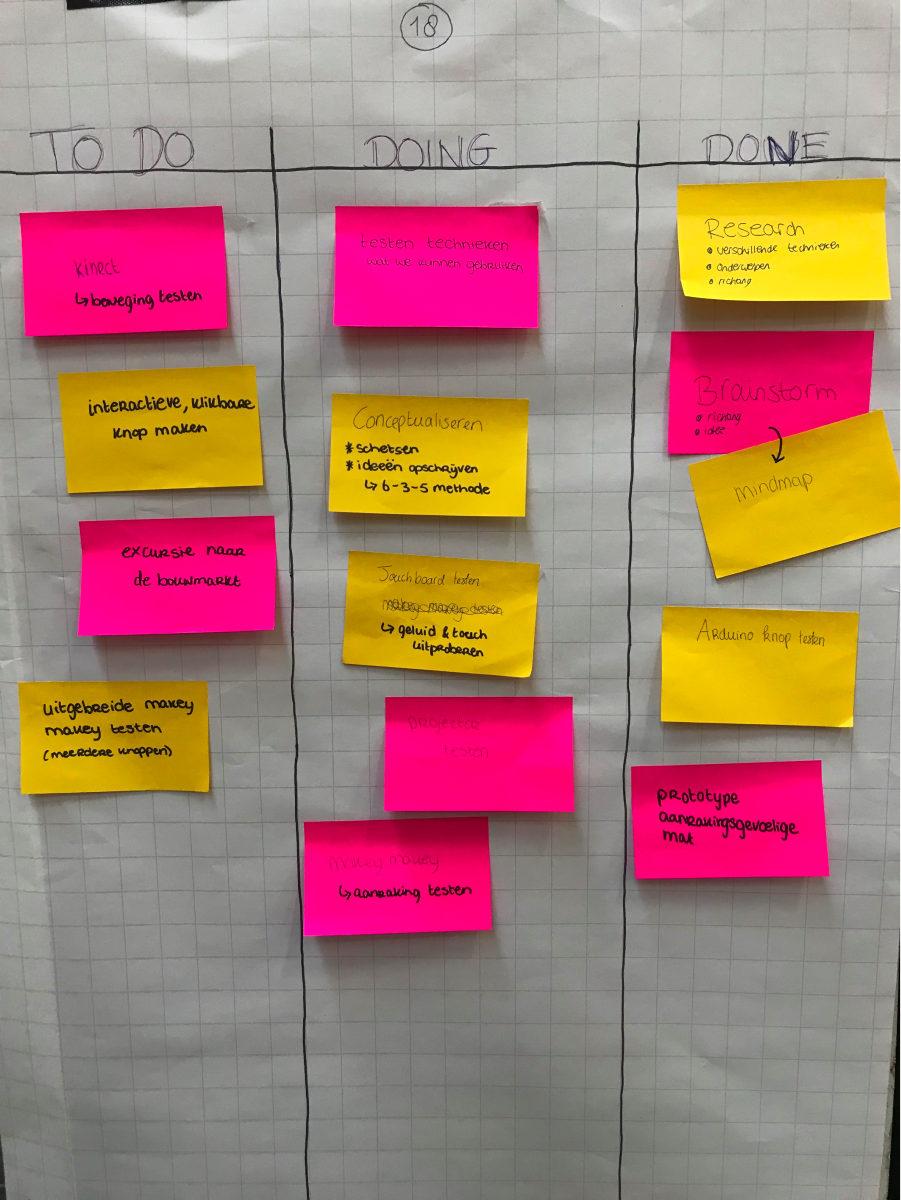 18
TO DO
DOING
DONE
kinect
↳ beweging testen
interactieve, klikbare
knop maken
excursie naar
de bouwmarkt
uitgebreide makey
makey testen
(meerdere knoppen)
testen technieken
wat we kunnen gebruiken
Conceptualiseren
* schetsen
* ideeën opschrijven
↳ 6-3-5 methode
Touchboard testen
makey makey testen
↳ geluid & touch
uitproberen
projector
testen
makey makey
↳ aanraking testen
Research
• verschillende technieken
• onderwerpen
• richting
Brainstorm
• richting
• idee
mindmap
Arduino knop testen
prototype
aanrakingsgevoelige
mat